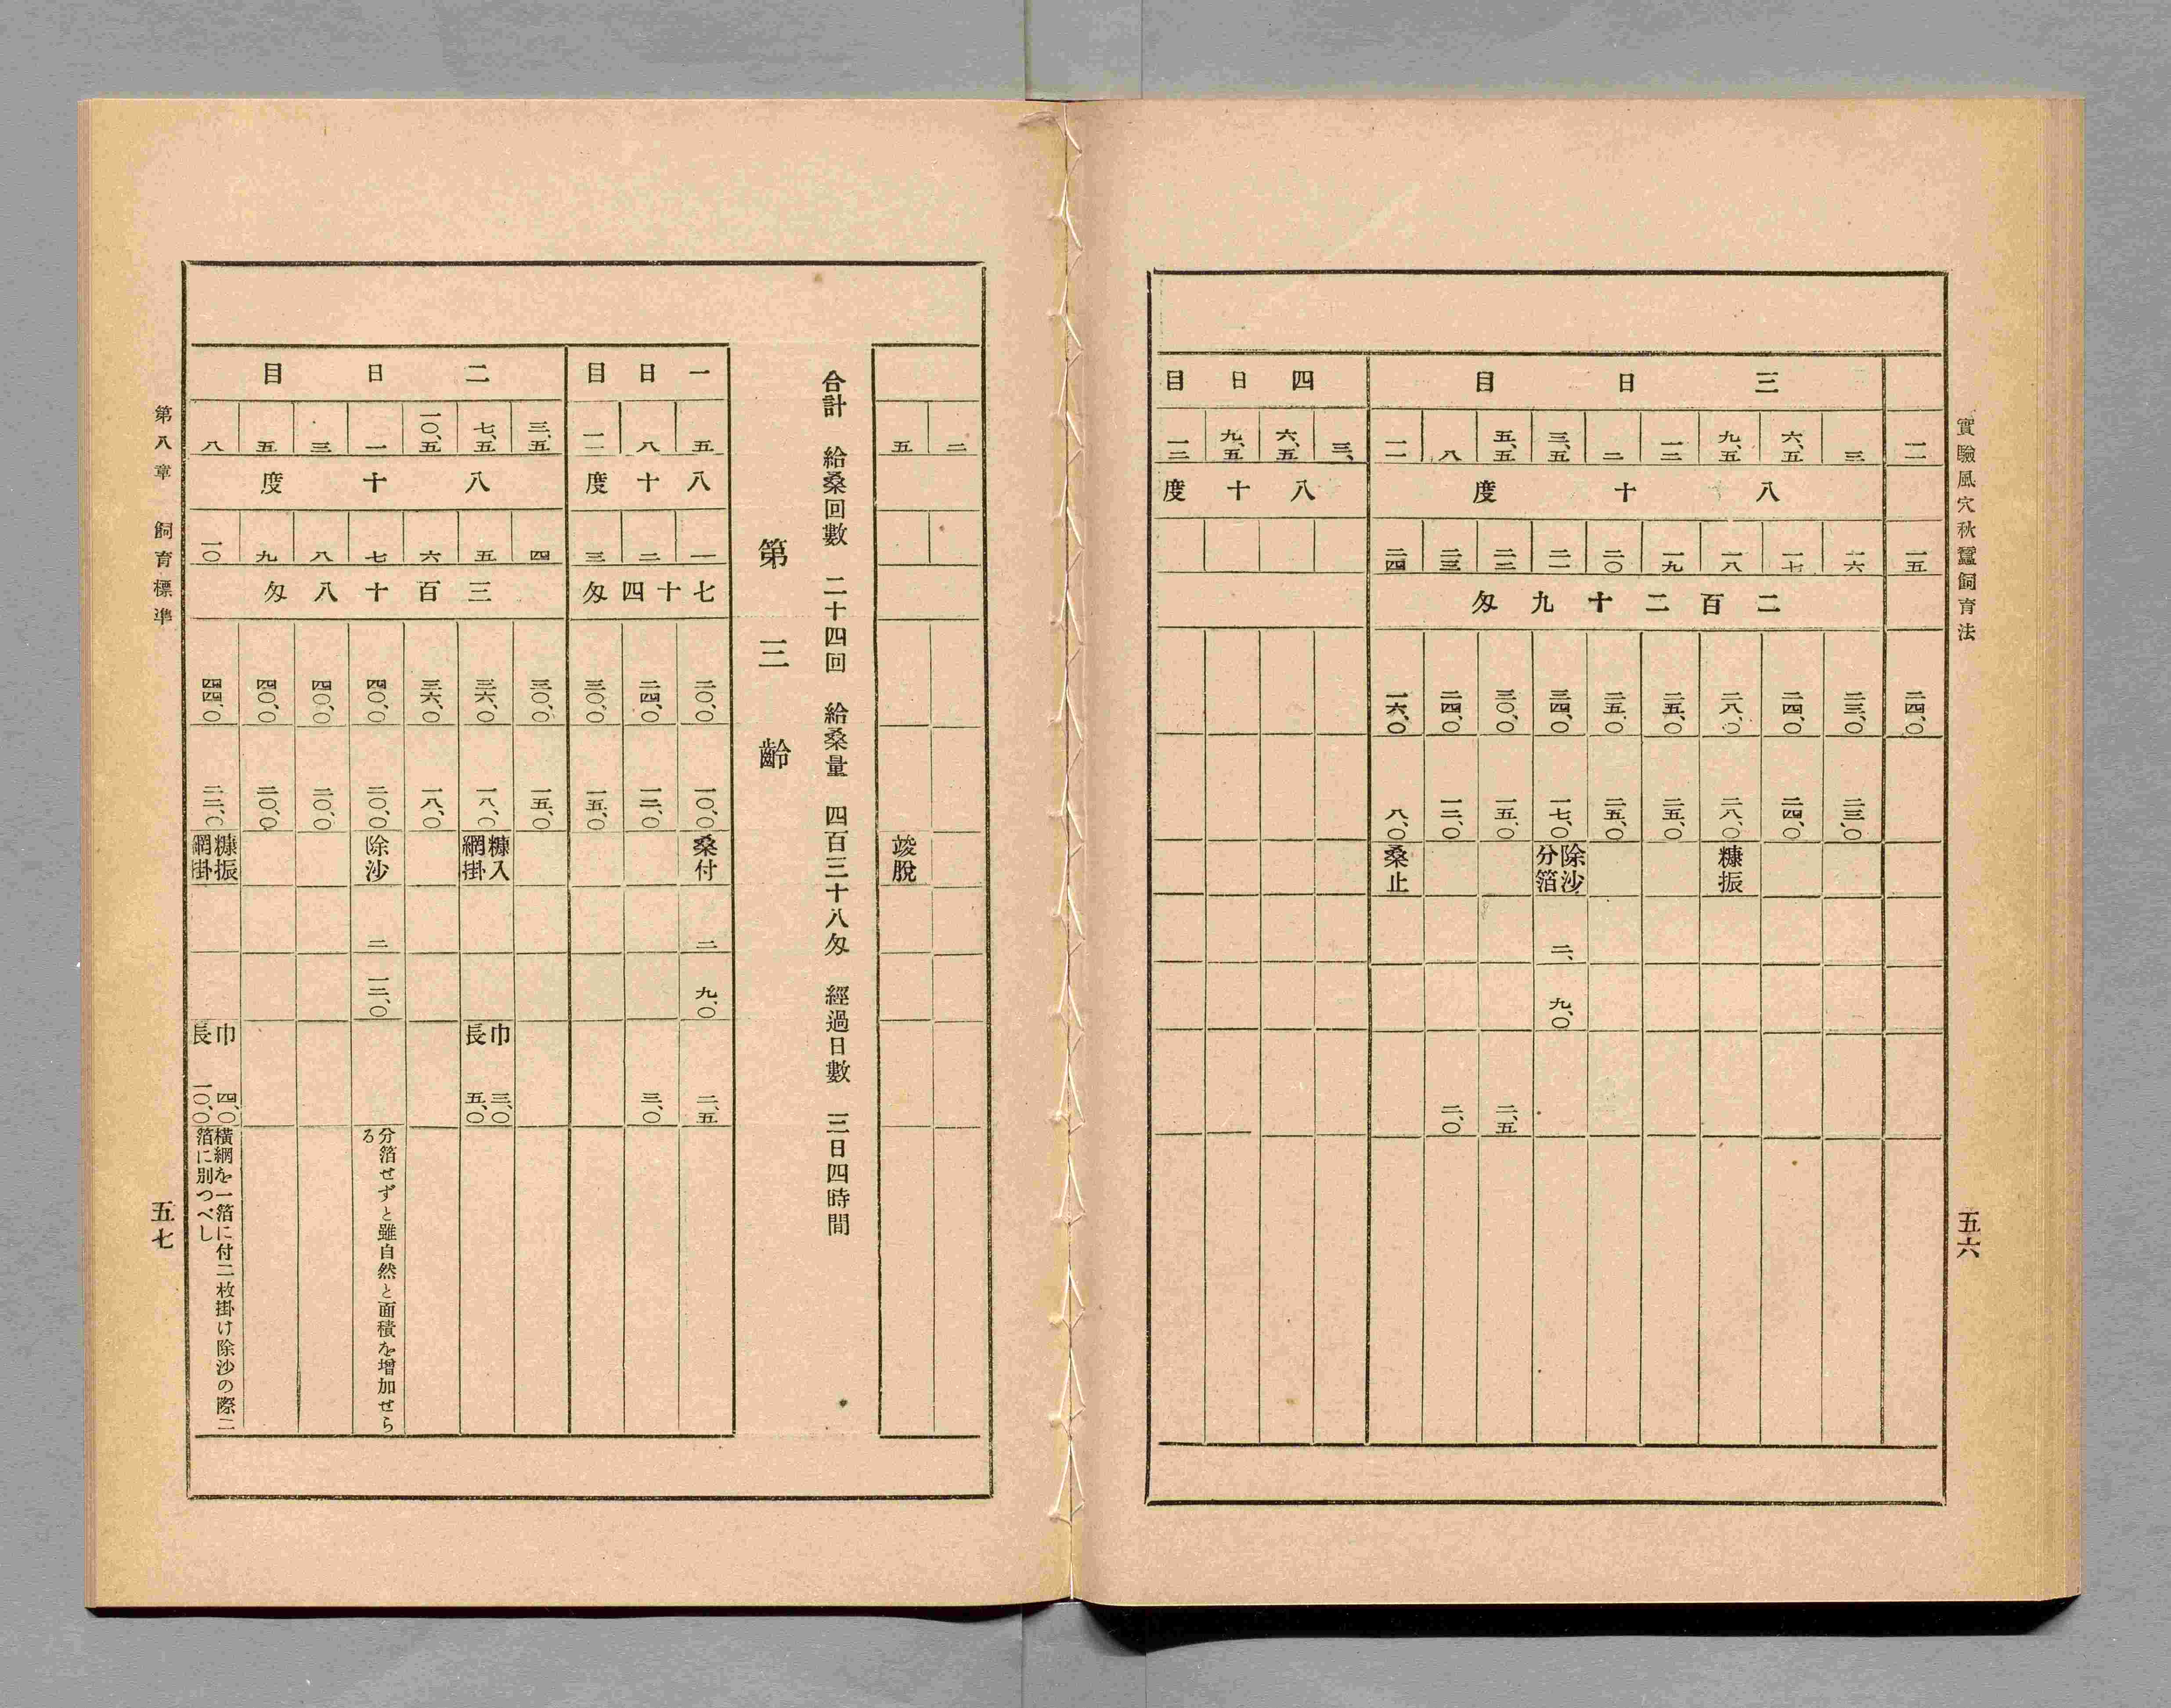 實驗風穴秋蠶飼育法
五六
三日目
四日目
一一 三 六、五 九、五 一二 二 三、五 五、五 八 一一 三、 六、五 九、五 一二
八十度
八十度
一五 一六 一七 一八 一九 二〇 二一 二二 二三 二四
二百二十九匁
二四、〇 二三、〇 二四、〇 二八、〇 二五、〇 二五、〇 三四、〇 三〇、〇 二四、〇 一六、〇
二三、〇 二四、〇 二八、〇 二五、〇 二五、〇 一七、〇 一五、〇 一二、〇 八、〇
糠振
除沙
分箔
桑止
二、
九、〇
二、五 二、〇
二 五
竣脫
合計 給桑回數 二十四回 給桑量 四百三十八匁 經過日數 三日四時間
第三齡
一日目
二日目
五 八 一一 三、五 七、五 一〇、五 一 三 五 八
八十度
八十度
一 二 三 四 五 六 七 八 九 一〇
七十四匁
三百十八匁
二〇、〇 二四、〇 三〇、〇 三〇、〇 三六、〇 三六、〇 四〇、〇 四〇、〇 四〇、〇 四四、〇
一〇、〇 一二、〇 一五、〇 一五、〇 一八、〇 一八、〇 二〇、〇 二〇、〇 二〇、〇 二二、〇
桑付
糠入
網掛
除沙
糠振
網掛
二 二
九、〇 一二、〇
二、五 三、〇
巾 三、〇
長 五、〇
巾 四、〇
長 一〇、〇
分箔せずと雖自然と面積を增加せら
る
橫網を一箔に付二枚掛け除沙の際二
箔に別つべし
第八章 飼育標準
五七